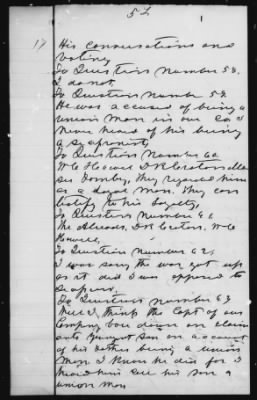 52
1
17
His conversations and
voting
To Question Number 58.
I do not
To Question Number 59
He was accused of being a
union man in our Co I
Never heard of his being
a
To Question Number 60
W C Howell D K Creaton
they regarded him
as a loyal man. They can
testify to his loyalty,
To Question Number 61
The Already, D K Creaton, W C
Howell,
To Question number 62,
I was sorry the war got up
as it did I was opposed to
To Question number 63
Well I think the Capt of our
Company bore down on claim
ants youngest son on account
of his Father being a union
Man. I know he did for I
heard him call his son a
union man